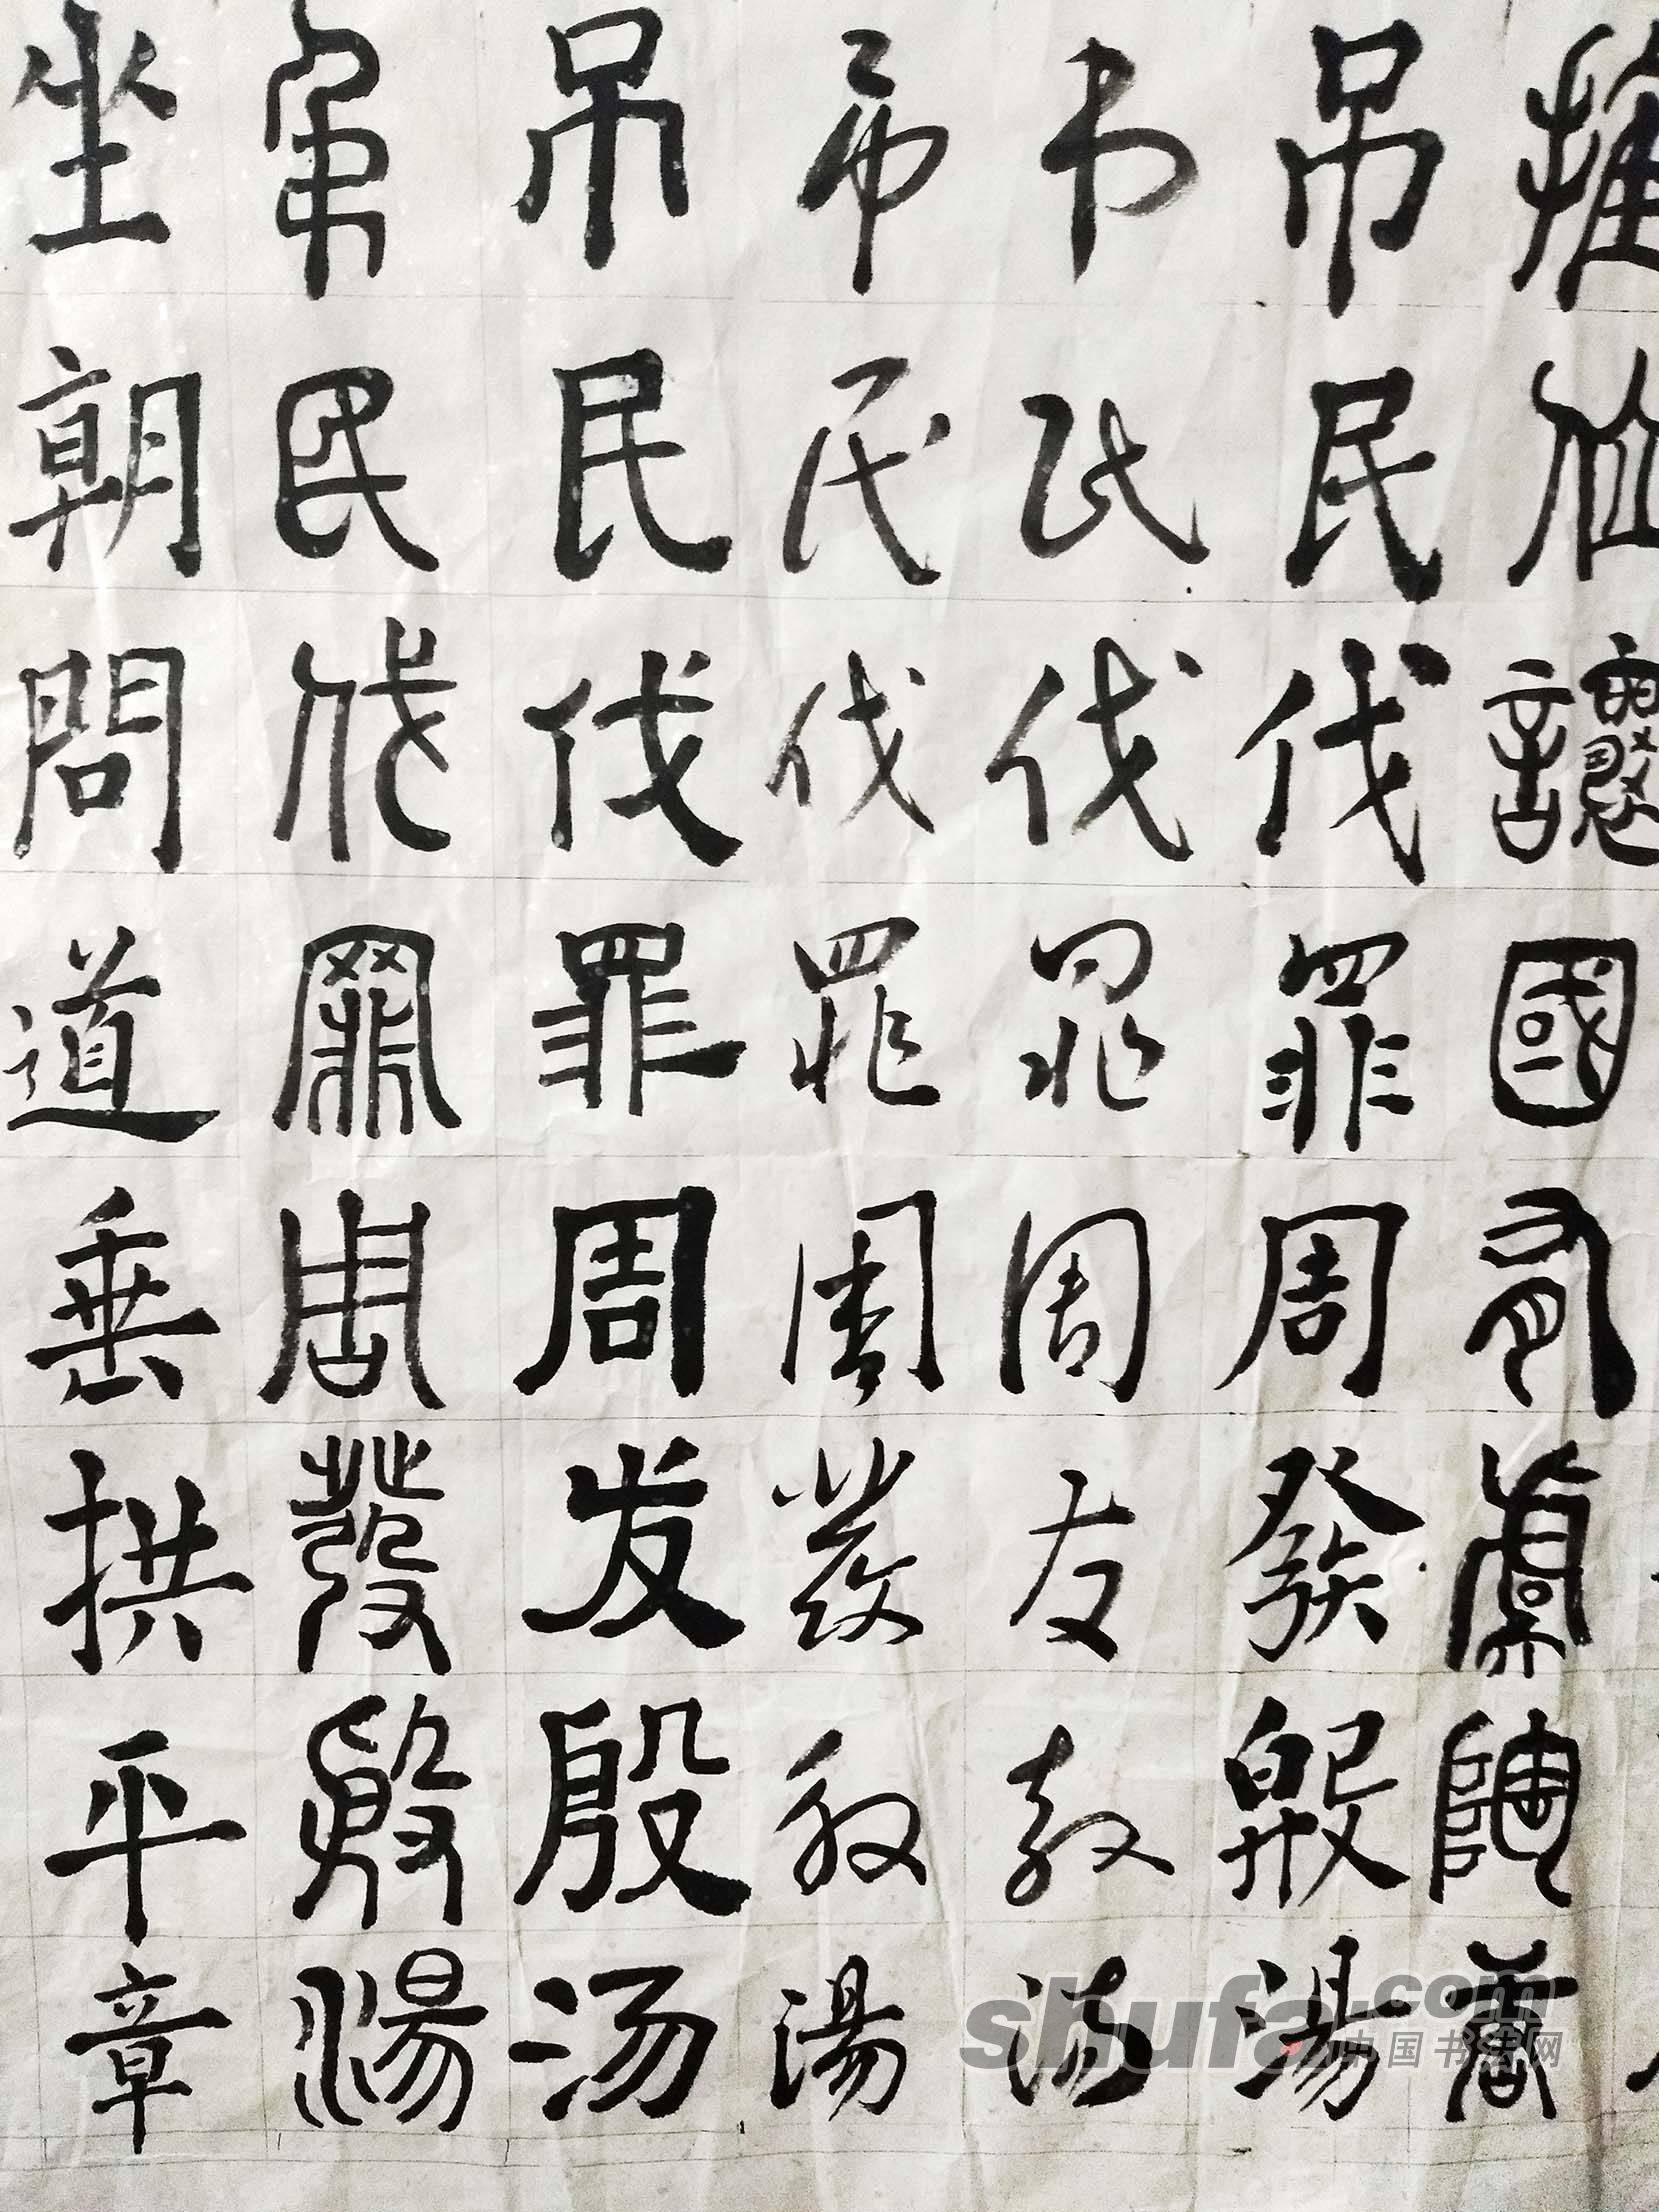 推位讓國有虞陶唐
吊民伐罪周發殷湯
吊民伐罪周发殷湯
吊民伐罪周發殷湯
吊民伐罪周发殷汤
弔民伐罪周發殷湯
坐朝問道垂拱平章
shufa.com
中国书法网